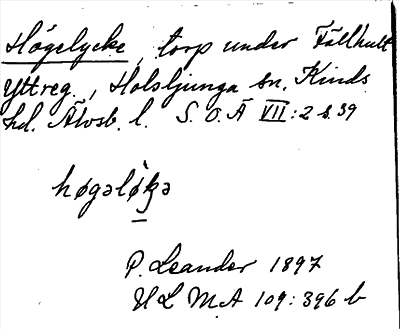 Högelycke, torp under Fällhult
Yttreg., Holsljunga sn, Kinds
hd. Älvsb. l. S. O. Ä VII:2 s. 39
høgəlø̀ʒə
P. Leander 1897
ULMA 109:396 b